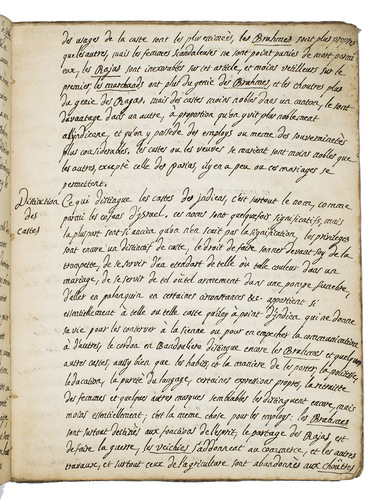 des usages de la caste sont les plus estimées, les Brahmes sont plus
quelesautres, mais les femmes scandaleuses ne sont point punies de mort parmi
eux, les Rajas sont inexorables sur cet article, et moins vetilleurs sur le
premier les marchands ont plus du genie des Brahmes, et les choutres plus
du genie des Rajas, mais des castes moins nobles dans un canton, le sont
davantage dans un autre, a proportion qu'on y vit plus noblement
alindienne, et qu'on y possede des employs ou meme des souverainetés
plus considerables. les castes ou les veuves se marient sont moins nobles que
les autres, excepté celle des Parias, il y en a peu ou ces mariages se
permettent.
Distinction
des
Castes
Ce qui distingue les castes des jndiens, c'est surtout le nom, comme
parmi les enfans d'jsrael, ces noms sont quelquefois significatifs, mais
la pluspart sont si anciens qu'on n'en scait pas la signification, les privileges
sont encore un distinctif de caste, le droit de faire sonner devant soy de la
trompette, de se servir d'un etendart de telle ou telle couleur dans un
mariage, de se servir de tel ou tel ornement dans une pompe funebre,
d'aller en palanquin en certaines circonstances &c. appartient si
essentiellement à telle ou telle caste qu'il n'y a point d'jndien qui ne donne
sa vie pour les conserver à la sienne ou pour en empescher la communication
à d'autres. le cordon en Bandouliere distingue encore les Brahmes et quelques
autres castes, aussy bien que les habits, et la maniere de les porter, la politesse,
l'education, la pureté du langage, certaines expressions propres, la retraitte
des femmes et quelques autres marques semblables les distinguent encore, mais
moins essentiellement; c'est la meme chose pour les employs. les Brahmes
sont surtout destinés aux fonctions de l'esprit, le partage des Rajas, est
de faire la guerre, les veichies s'addonnent au commerce, et les autres
travaux, et surtout ceux de l'agriculture sont abandonnés aux choutres